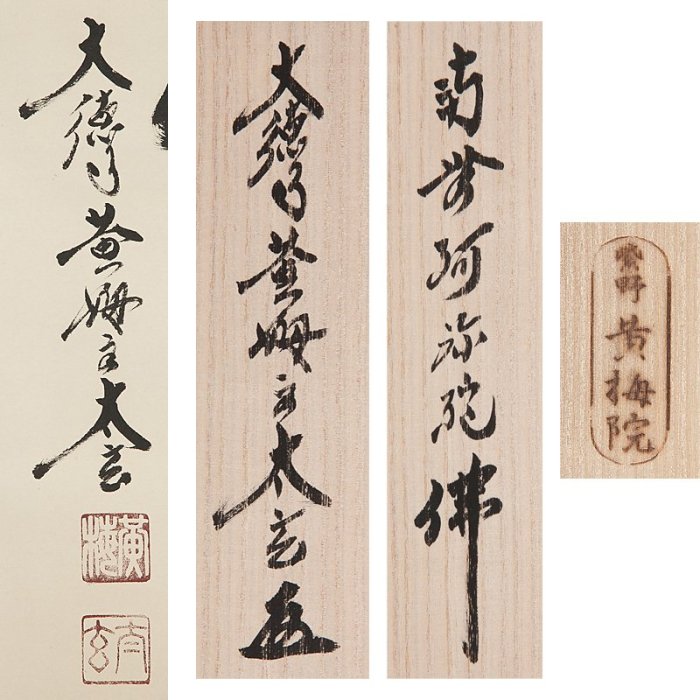 大徳寺黄梅主太玄
黄梅
太玄
大徳寺黄梅主太玄
南無阿弥陀佛
紫野
黄梅院